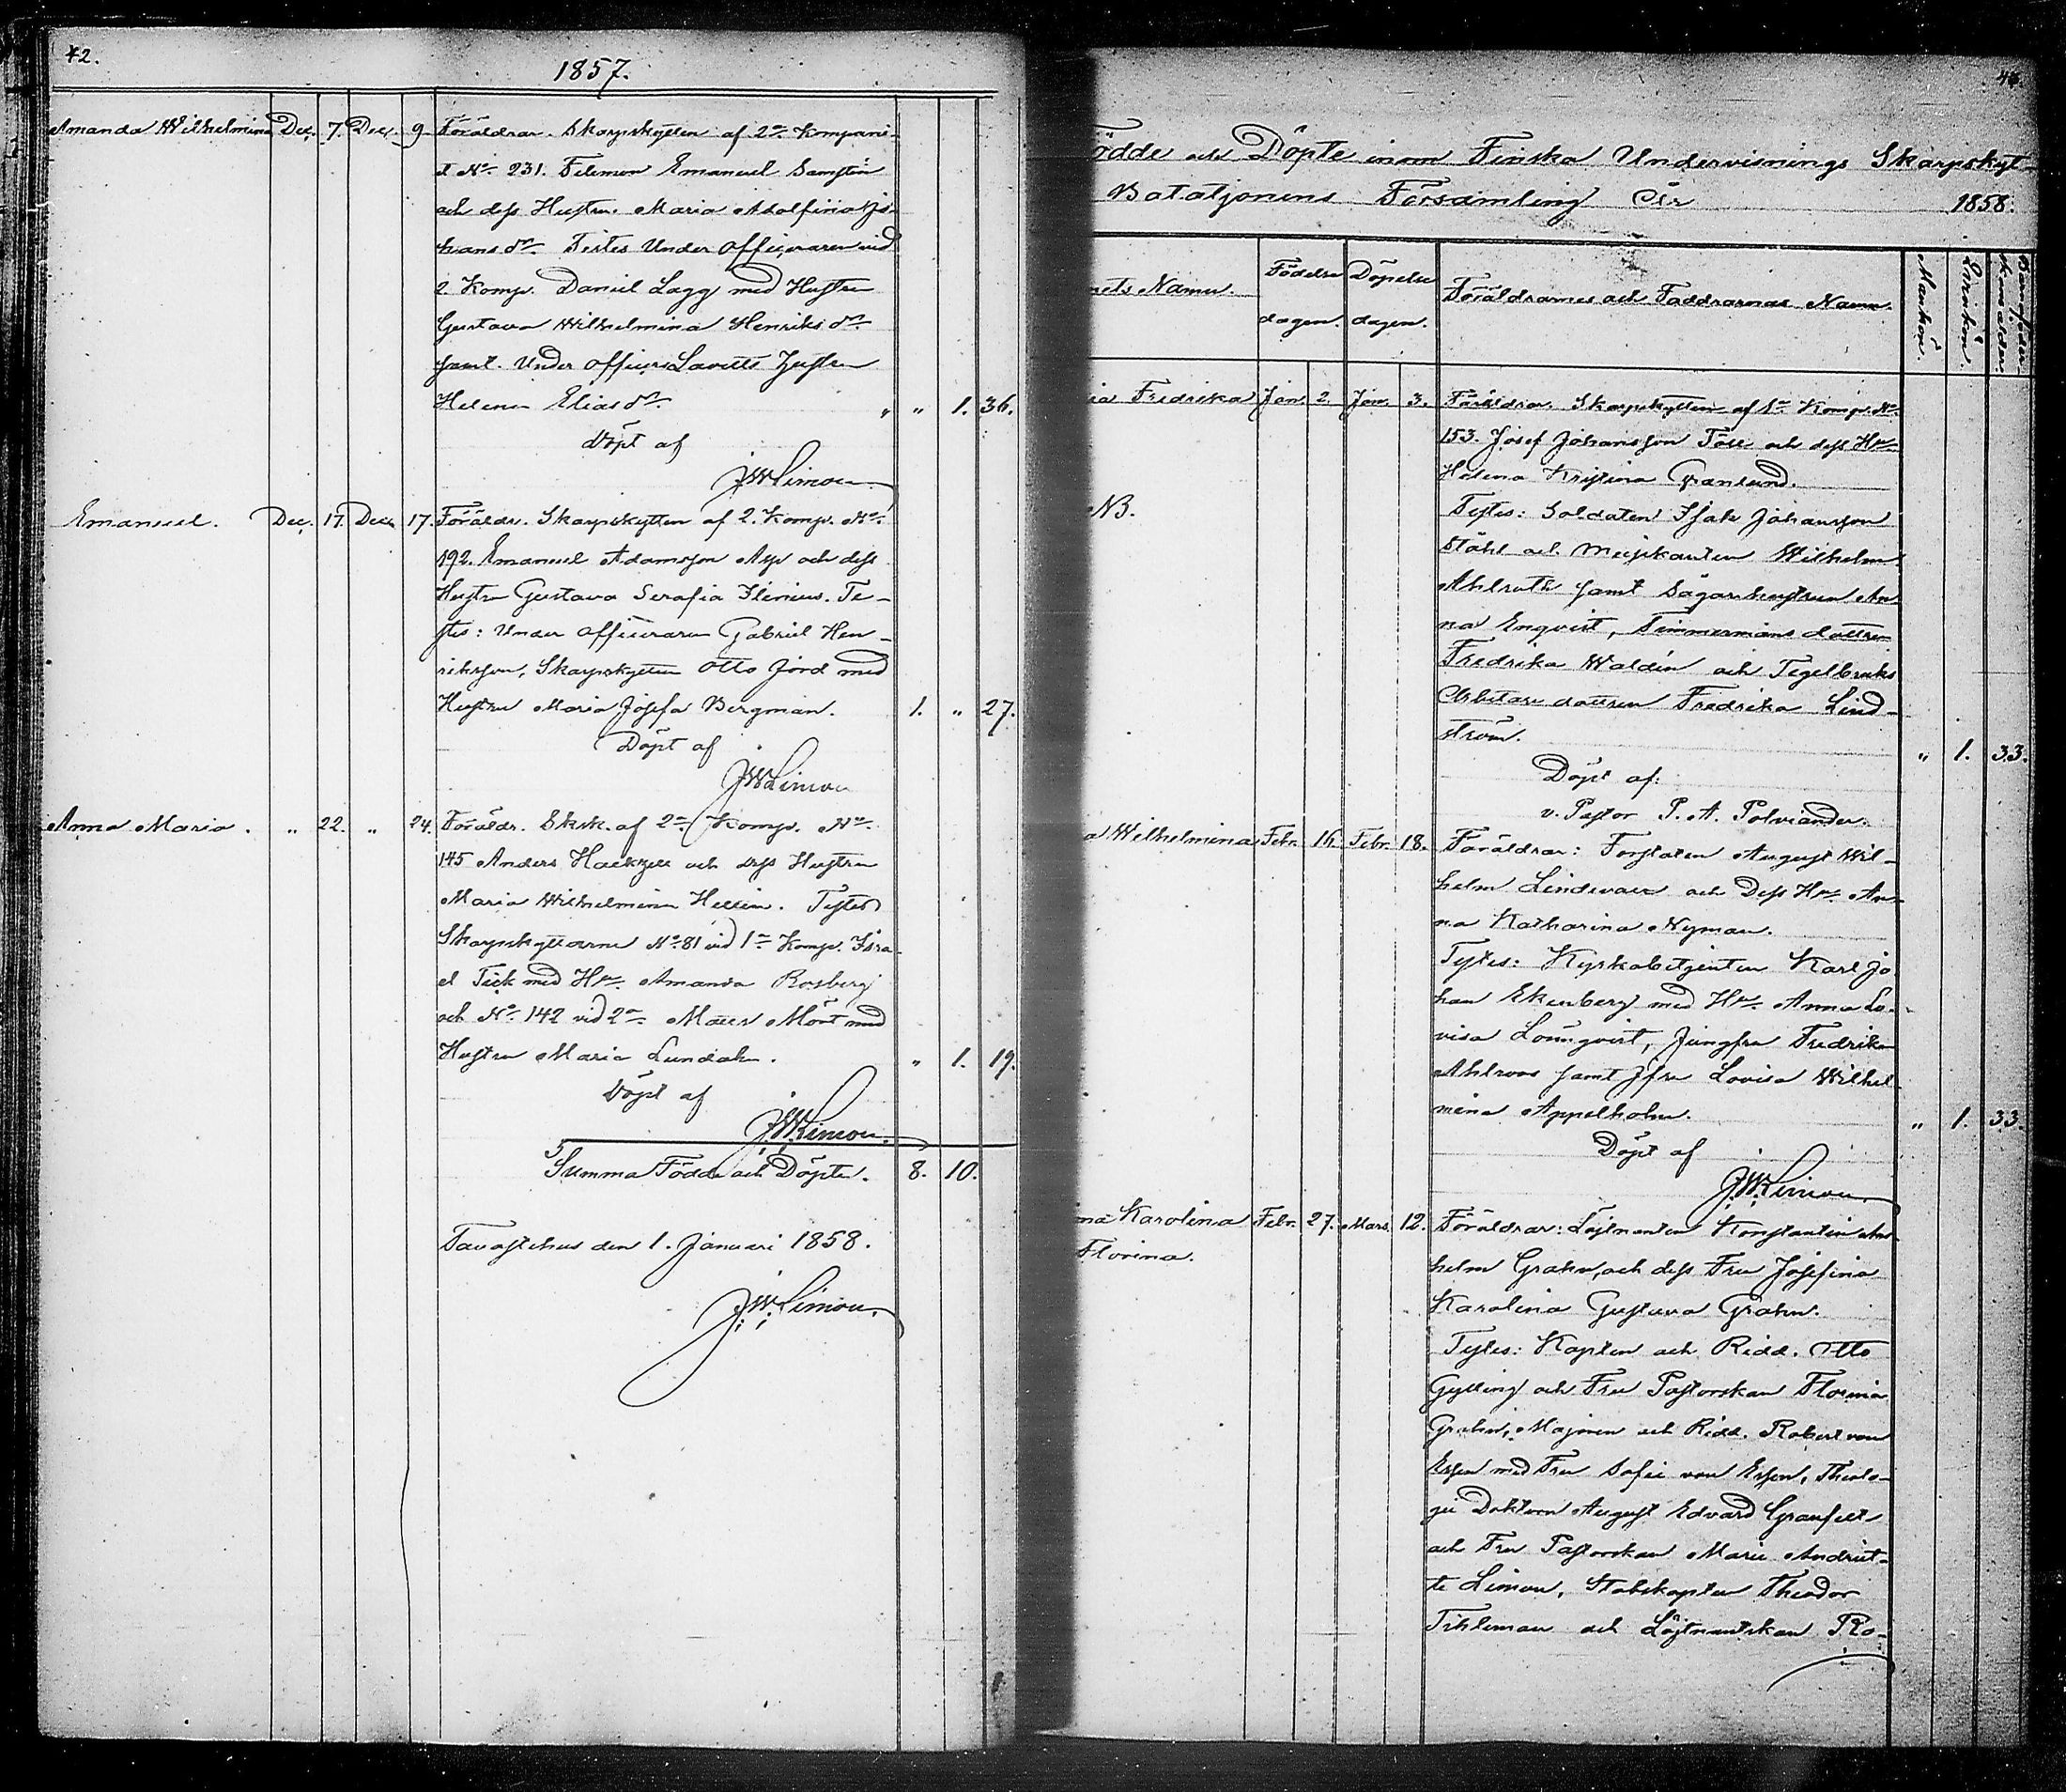 42.
1857.
Amanda Wilhelmina Dec. 7. Dec. 9. Föräldrar. Skarpskytten af 2a Kompani-
et No. 231. Filemon Emanuel Samstin
och dess Hustru Maria Adolfina Jo-
hansdr. Testes Under officeraren vid
2. Komp. Daniel Lagg med Hustru
Gustava Wilhelmina Henriksdr
samt Under officers Hustru
Helena Eliasdr. " " 1. 36.
Döpt af
JWLimon
Emanuel. Dec. 17. Dec. 17. Föräldr. Skarpskytten af 2. Komp. No.
192. Emanuel Adamsson Asp och dess
Hustru Gustava Serafia Ilenius. Te-
stes: Under officeraren Gabriel Hen-
riksson, Skarpskytten Otto Jord med
Hustru Maria Josefa Bergman. 1. " 27.
Döpt af
JWLimon
Anna Maria. " 22. " 24. Föräldr. Sksk. af 2a Komp. No.
145 Anders Hackzell och dess Hustru
Maria Wilhelmina Hellin. Testes
Skarpskyttarne No. 81 vid 1a Komp. Isra-
el Tick med Hu. Amanda Rosberg
och No. 142 vid 2a Matts Mört med
Hustru Maria Lundahn. " 1. 19.
Döpt af
J.W.Limon.
Summa Födde och Döpte. 8. 10.
Tavastehus den 1. Januari 1858.
J.W.Limon.
ödde och Döpte inom Finska Undervisnings Skarpskyt-
Bataljonens Församling År 1858.
nets Namn. Födelse dagen. Döpelse dagen. Föräldrarnes och Faddrarnas Namn. Mankön. Qvinkön.
ia Fredrika Jan. 2. Jan. 3. Föräldrar. Skarpskytten af 1a Komp. No.
153. Josef Johansson Täll och dess Hu.
Helena Kristina Granlund.
NB. Testes: Soldaten Isak Johansson
Ståhl och Musikanten Wilhelm
Ahlroth samt Sågarehustrun An-
na Enqvist, Timmermans dottren
Fredrika Waldén och Tegelbruks
Arbetare dottren Fredrika Lind-
ström. " 1. 33.
Döpt af:
v. Pastor P. A. Polviander.
a Wilhelmina Febr. 16. Febr. 18. Föräldrar: August Wil-
helm Lindevall och Dess Hu. An-
na Katharina Nyman.
Testes: Kyrkobetjenten Karl Jo
han Ekenberg med Hu. Anna Lo-
visa Lönnqvist, Jungfru Fredrika
Ahlroos samt Jfru Lovisa Wilhel-
mina Appelholm. " 1. 33.
Döpt af
J.W.Limon.
na Karolina Febr. 27. Mars. 12. Föräldrar: Löjtnanten Konstantin An-
Florina. helm Grahn, och dess Fru Josefina
Karolina Gustava Grahn.
Testes: Kapten och Ridd. Otto
Gylling och Fru Pastorskan Florina
Grahn, Majoren och Ridd. Robert von
Essen med Fru Sofie von Essen, Theolo-
gie Doktorn August Edvard Granfelt
och Fru Pastorskan Marie Andriet-
te Limon, Stabskapten Theodor
Tihleman och Löjtnantskan Ro-